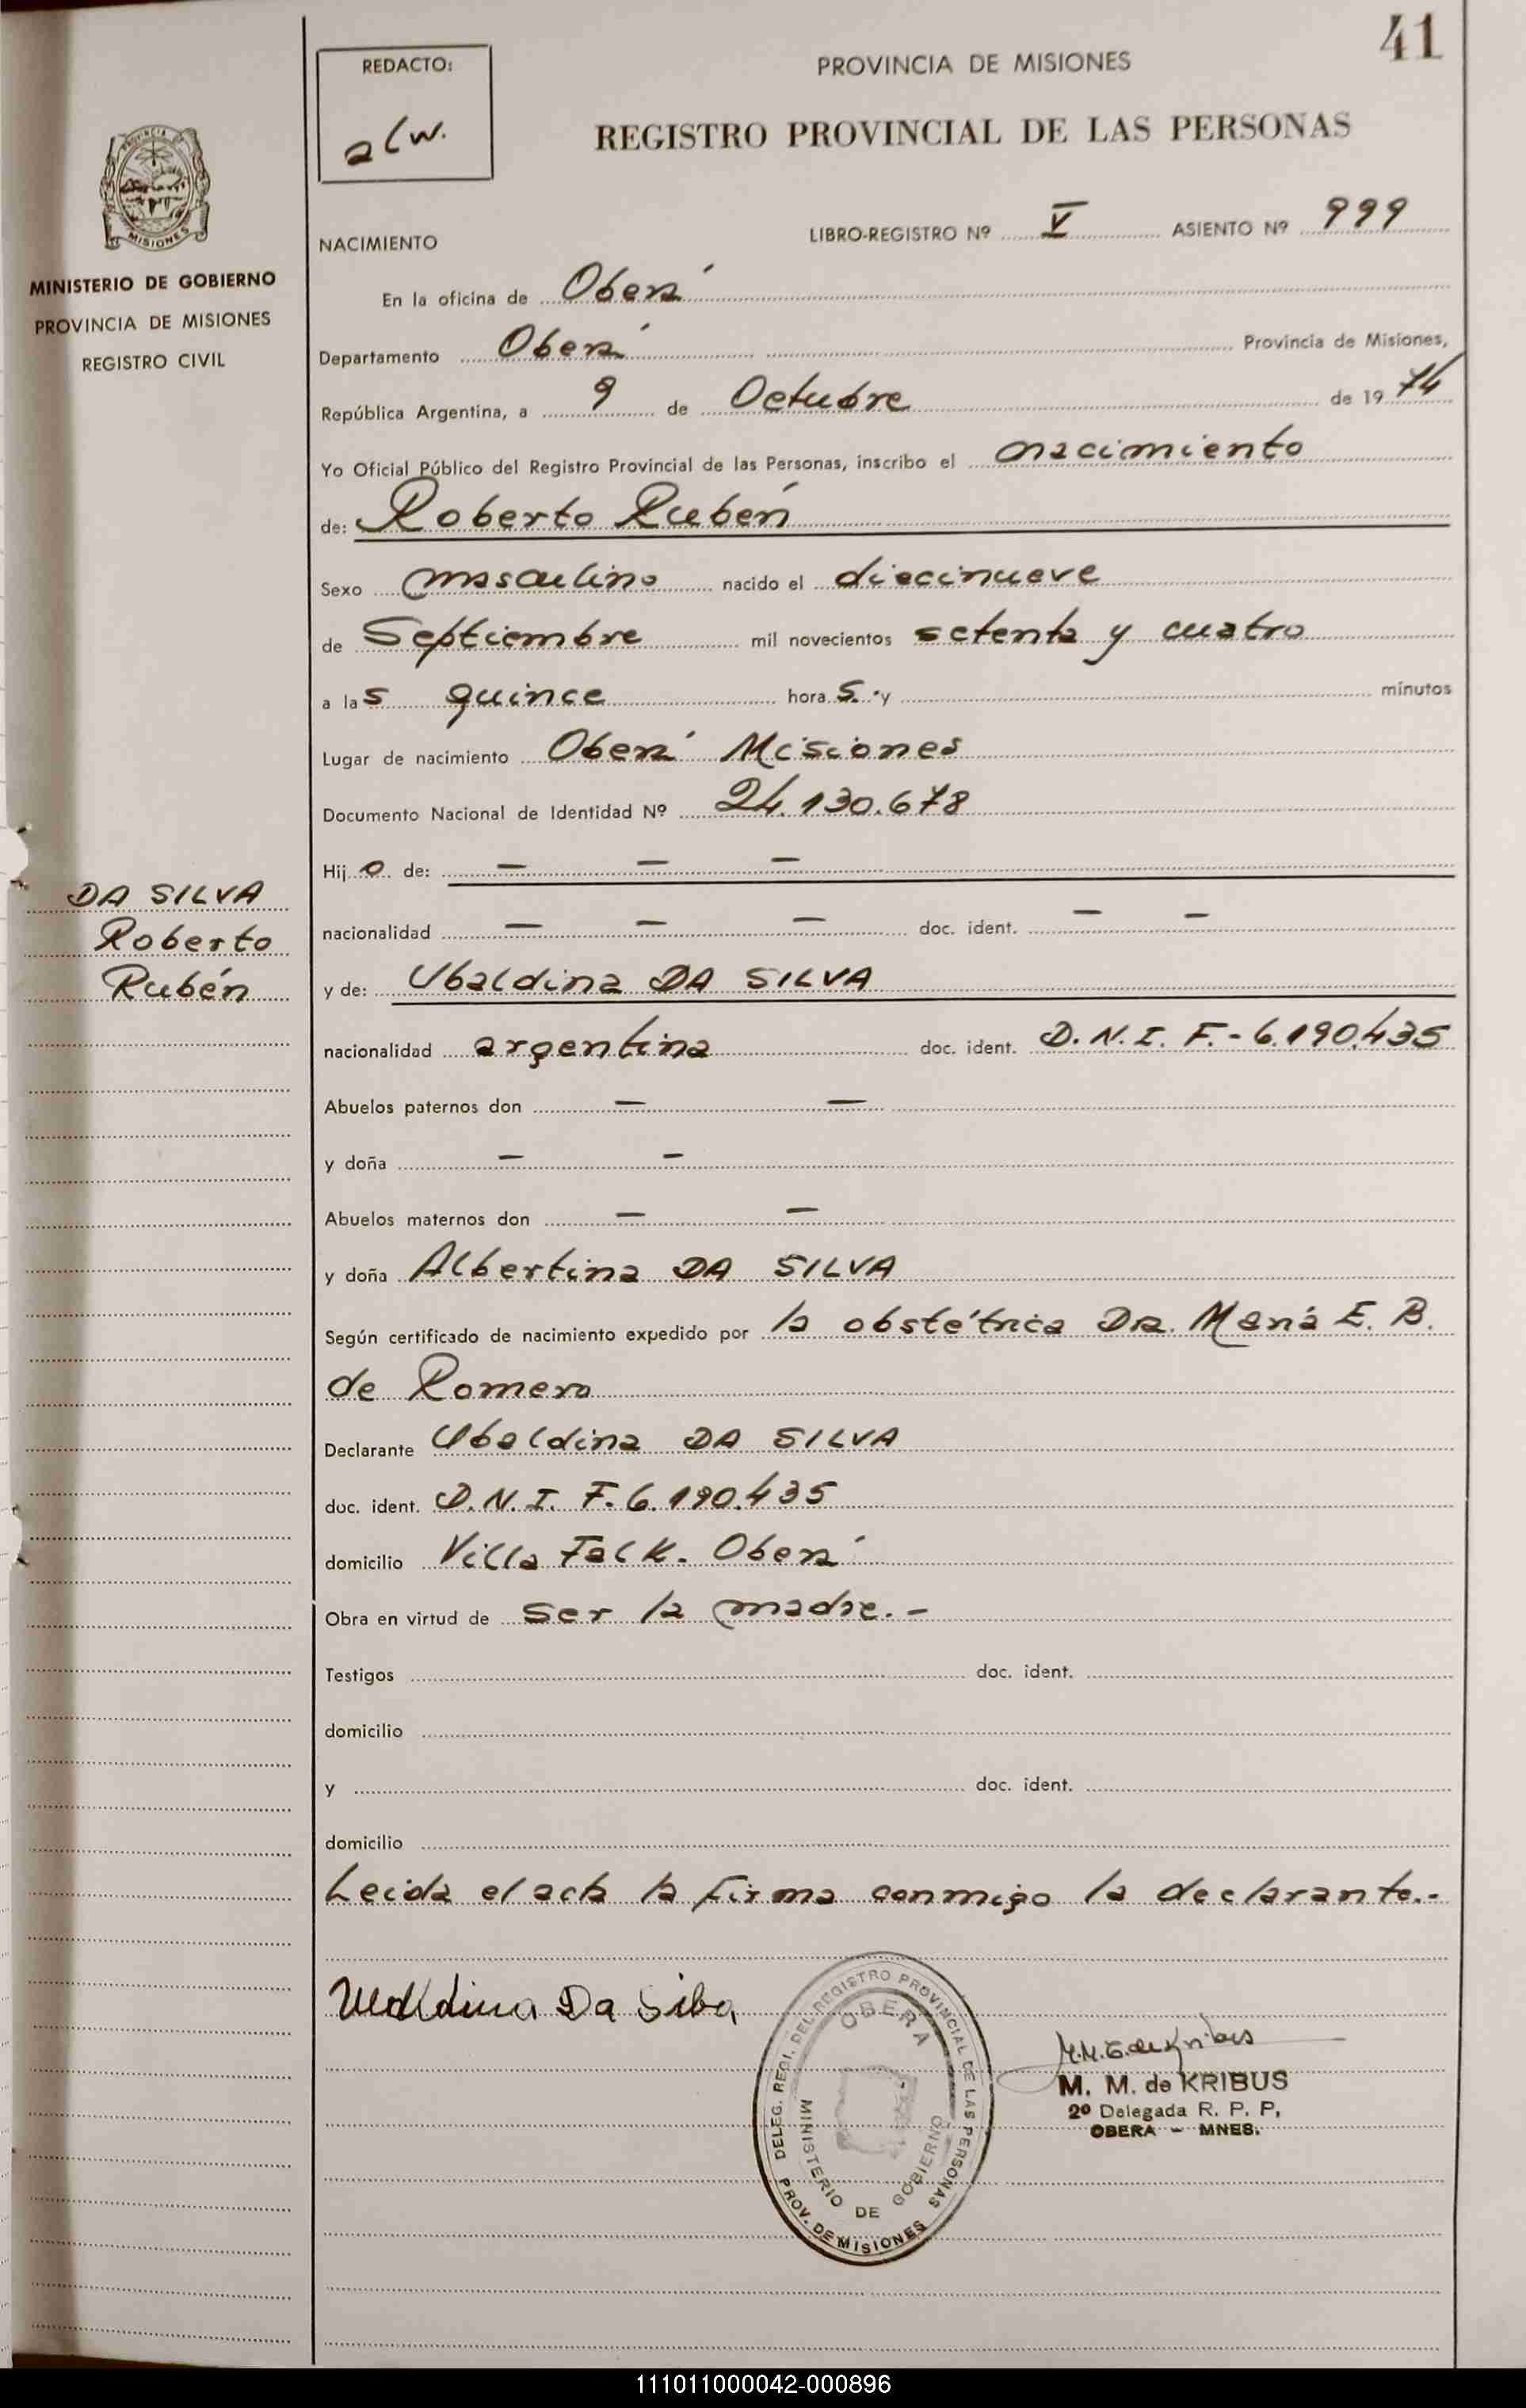 41
REDACTO:
alw.
PROVINCIA DE MISIONES
REGISTRO PROVINCIAL DE LAS PERSONAS
PROVINCIA
MISIONES
MINISTERIO DE GOBIERNO
PROVINCIA DE MISIONES
REGISTRO CIVIL
NACIMIENTO
LIBRO-REGISTRO Nº V ASIENTO Nº 999
En la oficina de Oberá
Departamento Oberá Provincia de Misiones,
República Argentina, a 9 de Octubre de 1974
Yo Oficial Público del Registro Provincial de las Personas, inscribo el nacimiento
de: Roberto Rubén
Sexo masculino nacido el diecinueve
de Septiembre mil novecientos setenta y cuatro
a las quince horas. y minutos
Lugar de nacimiento Oberá Misiones
Documento Nacional de Identidad Nº 24.130.678
Hijo de: — — —
DA SILVA
Roberto
Rubén
nacionalidad — — — doc. ident. — —
y de: Ubaldina DA SILVA
nacionalidad argentina doc. ident. D.N.I. F.- 6.190.435
Abuelos paternos don — —
y doña — —
Abuelos maternos don — —
y doña Albertina DA SILVA
Según certificado de nacimiento expedido por la obstétrica Dra. María E. B.
de Romero
Declarante Ubaldina DA SILVA
doc. ident. D.N.I. F. 6.190.435
domicilio Villa Falk. Oberá
Obra en virtud de ser la madre.-
Testigos doc. ident.
domicilio
y doc. ident.
domicilio
Leida el acta la firma conmigo la declarante.-
Da Silva
DELEG. REGI. DEL REGISTRO PROVINCIAL DE LAS PERSONAS
OBERA
MINISTERIO DE GOBIERNO
PROV. DE MISIONES
M. M. de KRIBUS
2º Delegada R. P. P,
OBERA - MNES.
111011000042-000896